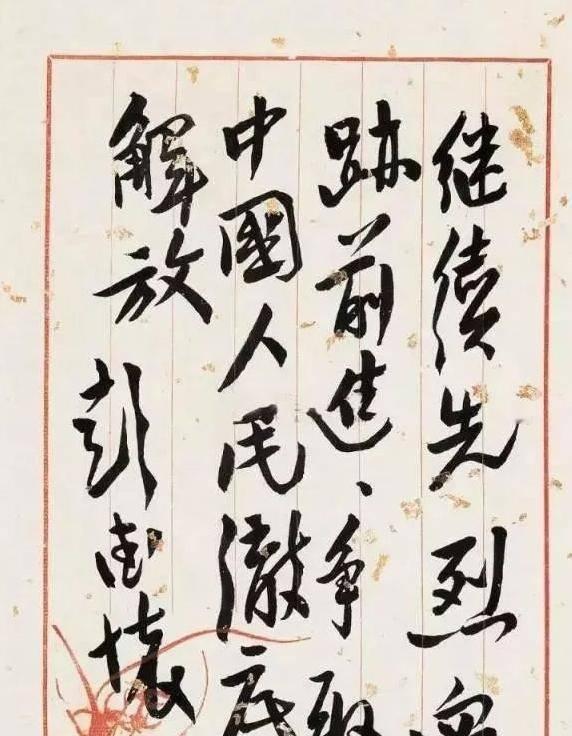 继續先烈血
跡前進、争取
中國人民徹底
解放 彭德懷